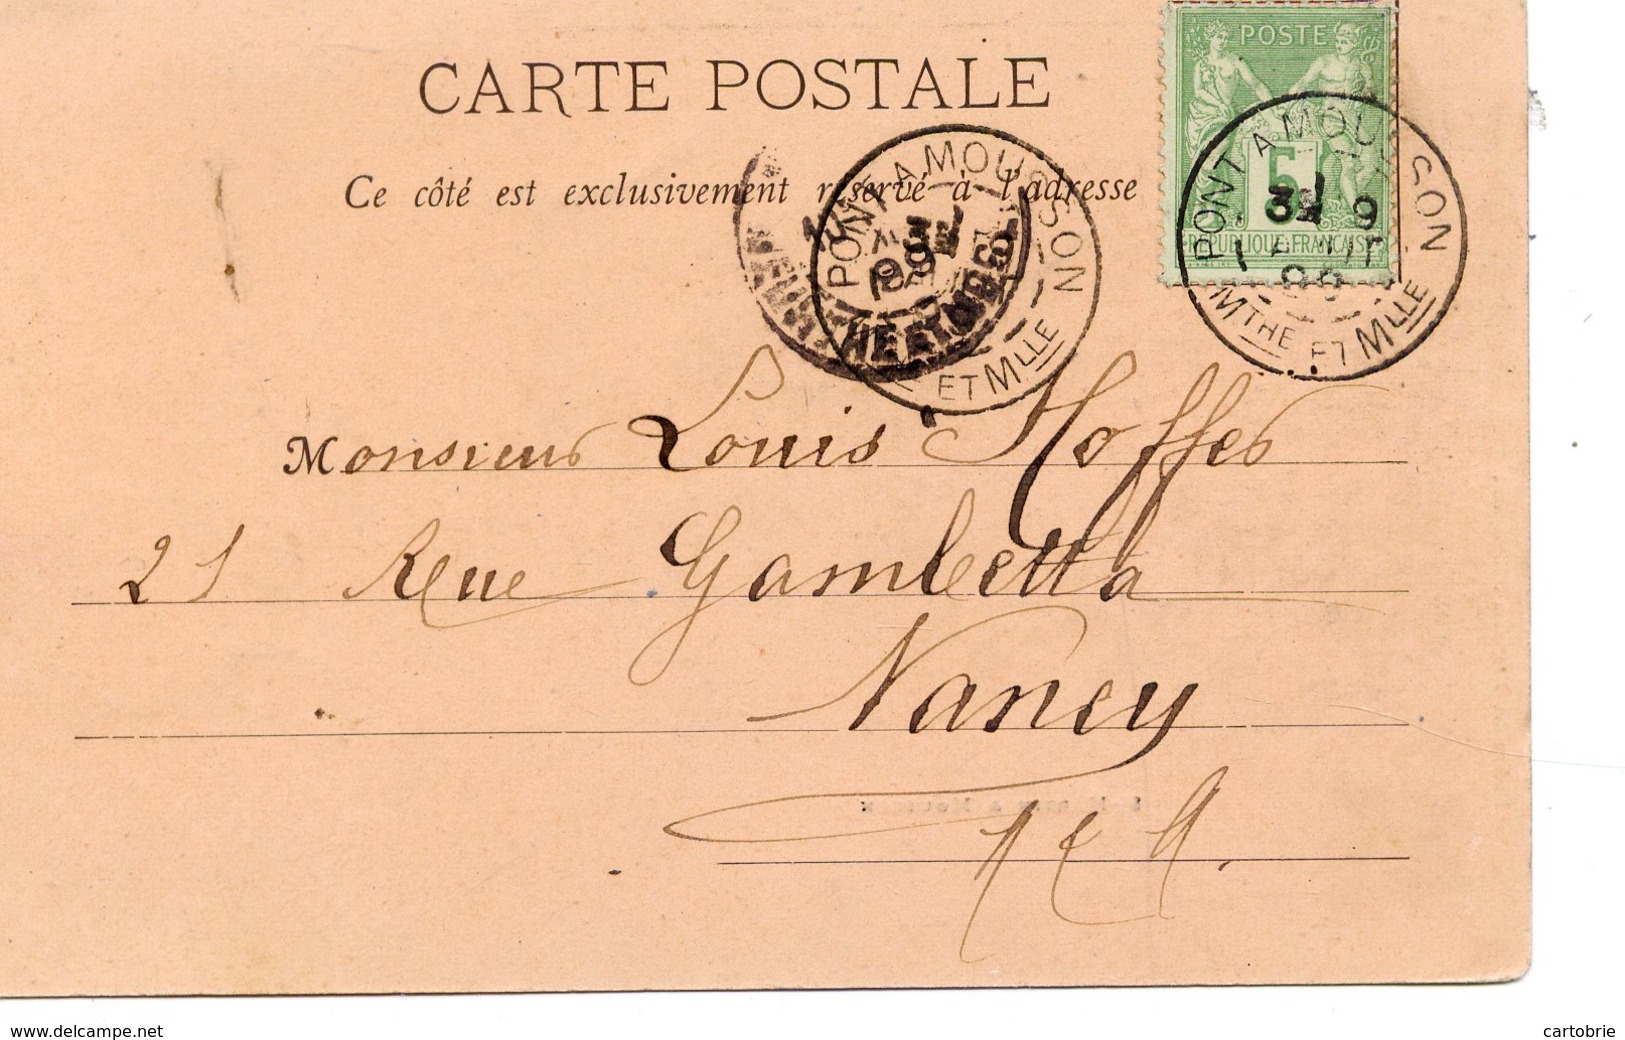 POSTE
5
RÉPUBLIQUE FRANÇAISE
CARTE POSTALE
Ce côté est exclusivement réservé à l'adresse
PONT A MOUSSON
ET MLLE
PONT A MOUSSON
MTHE ET MLLE
Monsieur Louis Hoffer
21 Rue Gambetta
Nancy
www.delcampe.net
cartobrie